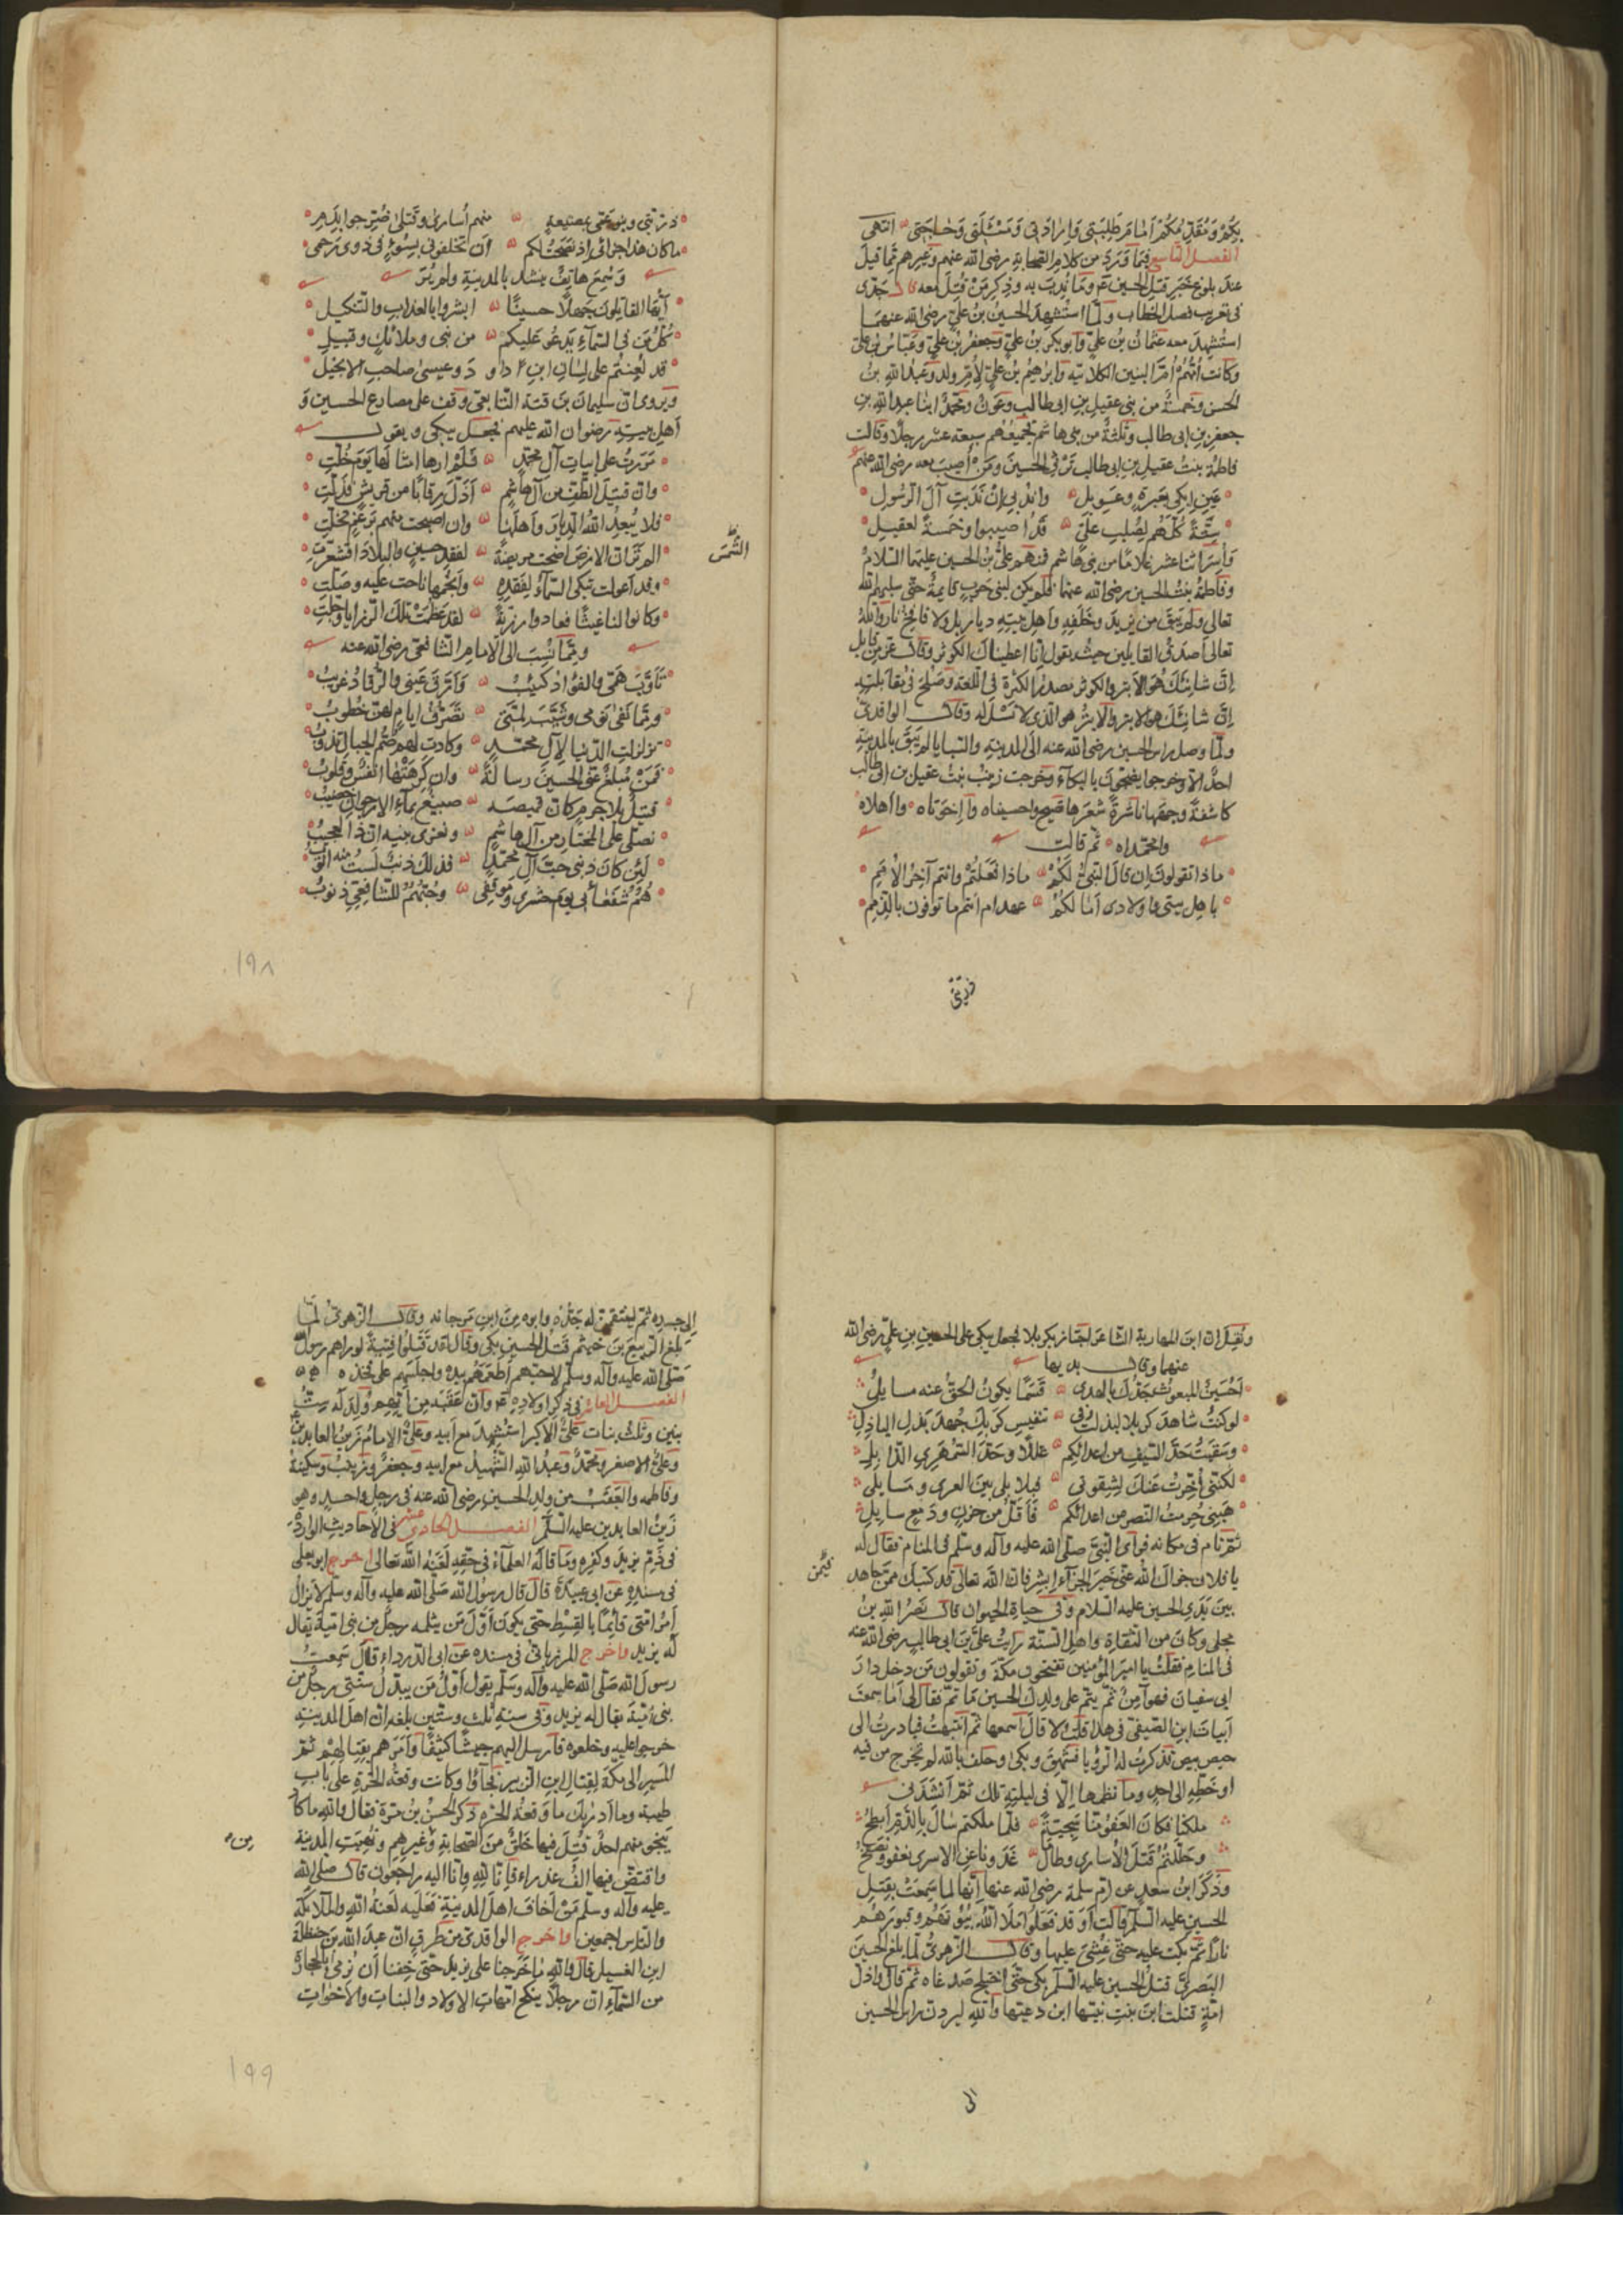 بكم ومقدمكم امام طلبتي وارادتي ومسئلتي وحاجتي انتهى
الفصل التاسع فيما ورد من كلام الصحابة رضي الله عنهم وغيرهم مما قيل
عند بلوغ خبر قتل الحسين عم وما نُدِبَ به وذكر مَنْ قُتِلَ معه قال جدّى
فى تعريب فصل الخطاب ولمّا استُشهِدَ الحسينُ بنُ عليّ رضى الله عنهما
استُشهِدَ معه عثمانُ بن عليّ وابو بكر بن عليّ وجعفر بن عليّ وعبّاس بن على
وكانت اُمُّهُمْ اُمَّ البنين الكلابيّه وابرهيمُ بن عليّ لِأُمِّ ولد وعبدُ اللهِ بنُ
الحسن وخمسةٌ من بنى عقيلِ بنِ ابى طالب وعونٌ ومحمّدٌ ابنا عبدِ اللهِ بنِ
جعفرِ بن ابى طالب وثلثةٌ من بنى هاشم فجميعُهُم سبعة عشر رجلًا وقالت
فاطمةُ بنتُ عقيلِ بنِ ابى طالب ترثى الحسينَ ومَنْ اُصيبَ معه رضى الله عنهم
عينِ ابكى بعبرةٍ وعويل واندبى إنْ نَدَبتِ آلَ الرّسول
ستّةٌ كلّهم لصُلبِ علىّ قَدْ اُصيبوا وخمسةٌ لعقيل
وأُسِرَ اثنا عشر غلامًا من بنى هاشم فمنهم علىُّ بنُ الحسين عليهما السّلام
وفاطمةُ بنتُ الحسين رضى الله عنهما فلم يكن لبنى حربٍ قايمةٌ حتّى سلبهم الله
تعالى ولم يَبقَ من يزيدَ وخَلَفِهِ واهلِ بيتِهِ ديارٌ بل ولا نافخ نارٍ والله
تعالى اصدقُ القايلين حيث يقول انا اعطيناك الكوثر وقال عزّ من قايل
إنّ شانئك هو الأبتر والكوثر مصدر الكثرة فى اللّغة وصلح فى مقابلته
إنّ شانئك هو الابتر والابتر هو الّذى لا نَسْلَ له وقال الواقدىّ
ولمّا وصل رأس الحسين رضى الله عنه الى المدينة والسّبايا لم يَبقَ بالمدينة
احدٌ الّا وخرجوا يضجّون بالبكآء وخرجت زينبُ بنتُ عقيل بن ابى طالب
كاشفةً وجهَها ناشرةً شعرَها تصيح واحسيناه وا إخوتاه وا اهلاه
وا محمّداه ثم قالت
ماذا تقولون ان قالَ النبىُّ لكم ماذا فعلتُم وانتم آخرُ الاُمَمِ
باهل بيتى واولادى اَمَا لكمُ عهد ام انتم ما توفون بالذِّمَمِ
ذرّيّتى
ذرّيّتى وبنو عمّى بمضيعةٍ منهم اُسارى وقتلى ضُرِّجوا بِدَمِ
ما كان هذا جزائى اذ نصحتُ لكم ان تخلفونى بسوءٍ فى ذوى رَحِمى
وسُمِعَ هاتفٌ ينشد بالمدينةِ ولم يُرَ
ايّها القاتلون جهلًا حسينًا ابشروا بالعذاب والتّنكيل
كلُّ مَن فى السّمآءِ يدعو عليكم من نبى وملائك وقبيل
قد لُعِنتُم على لسانِ ابنِ داو دَ وعيسى صاحبِ الانجيل
ويروى ان سليمانَ بنَ قتة التّابعى وقف على مصارع الحسين و
اَهلِ بيتِه رضوان الله عليهم فجعل يبكى ويقول
مَرَرتُ على ابياتِ آلِ محمّدٍ فَلَمْ ارها امثالَها يومَ حُلَّتِ
وانّ قتيلَ الطّفِّ من آلِ هاشمٍ اَذَلَّ رِقابًا من قريشٍ فَذَلَّتِ
فلا يُبعِدُ اللهُ الدّيارَ واَهلَها وان اصبحت منهم برَغمى تخلّتِ
الم ترَ انّ الارضَ اضحت مريضةً لفقدِ حسينٍ والبلادَ اقشعرّتِ
الشّمسَ
وقد اَعوَلت تبكى السّمآءُ لِفقدِه وأنجُمُها ناحت عليه وصَلَّتِ
وكانوا لنا غيثًا فعادوا رزيّةً لقد عظُمَتْ تلك الرّزايا وجلّتِ
وممّا نُسِبَ الى الامام الشّافعى رضى الله عنه
تأوَّبَ همّى والفؤادُ كئيبُ واَرَّقَ عينى والرّقادُ غريبُ
وممّا نفى نومى وشيّبَ لمّتى تصرُّفُ ايّامٍ لهنّ خطوبُ
تزلزلتِ الدّنيا لآلِ محمّدٍ وكادت لهم صُمُّ الجبال تذوبُ
فمَنْ مُبلِغٌ عنّى الحسينَ رسالةً وان كرِهَتْها انفُسٌ وقلوبُ
قتيلٌ بلا جُرمٍ كان قميصَه صبيغٌ بمآءِ الارجوانِ خضيبُ
نصلّى على المختار من آل هاشمٍ ونغزى بنيه انّ ذا لعجيبُ
لئن كان ذنبى حبَّ آلِ محمّدٍ فذلك ذنبٌ لستُ منه اتوبُ
هُمُ شُفَعائى يومَ حشرى وموقفى وحُبُّهُمُ للشّافعىِّ ذنوبُ
١٩٨
ونُقِلَ انّ ابنَ الهبارية الشّاعر اجتاز بكربلا فجعل يبكى على الحسينِ بنِ علىّ رضى الله
عنهما وقال بديها
اَحُسينُ والمبعوثِ جدُّك بالهدى قَسَمًا يكونُ الحقُّ عنه مسايلى
لو كنتُ شاهدَ كربلا لبذلتُ فى تنفيسِ كربِك جُهدَ بذلِ الباذلِ
وسَقَيتُ حدَّ السّيفِ من اعدائكم عللًا وحدَّ السّمهرىِّ الذّابلِ
لكنّنى اُخِّرتُ عنك لِشِقوتى فبلابلى بينَ الغرى وبابلى
هبنى حُرِمتُ النّصرَ من اعدائكم فأقلُّ من حزنٍ ودمعٍ سايلِ
ثمّ نام فى مكانه فرأى النّبىَّ صلّى الله عليه وآله وسلّم فى المنام فقال له
يا فلان جزاك الله عنّى خيرَ الجزآءِ ابشر فانّ الله تعالى قد كتبك ممّن جاهد
بينَ يَدَىِ الحسين عليه السلام وفى حياةِ الحيوان قال نصرُ اللهِ بنُ
مجلى وكان من الثّقاة واهلِ السّنّة رأيتُ علىَّ بنَ ابى طالب رضى الله عنه
فى المنام فقلتُ يا اميرَ المؤمنين تفتحون مكّةَ وتقولون مَن دخل دارَ
ابى سفيانَ فهو آمنٌ ثمّ يتمّ على ولدك الحسين ما تمّ فقال لى اَما سمعتَ
ابياتَ ابنِ الصّيفىّ فى هذا قلتُ لا قال اسمعها ثمّ انتبهتُ فبادرتُ الى
حيص بيص فذكرتُ له الرّؤيا فشهق وبكى وحلف بالله لم تخرج من فيه
او خطّه الى احدٍ وما نظمها الّا فى ليلته تلك ثمّ اَنشَدَنى
ملكنا فكان العفوُ منّا سجيّةً فلمّا ملكتم سالَ بالدّمِ ابطحُ
وحلّلتُمُ قتلَ الاُسارى وطالما غدونا عن الاسرى نعفو ونصفحُ
وذكر ابنُ سعدٍ عن امّ سلمة رضى الله عنها انّها لما سَمِعَتْ بقتلِ
الحسين عليه السّلم قالت اَوَ قد فعلوا ملأ اللهُ بيوتَهم وقبورَهم
نارًا ثمّ بكت عليه حتّى غُشِىَ عليها وقال الزّهرىُّ لمّا بلغ الحسنَ
البصرىَّ قتلُ الحسين عليه السّلم بكى حتّى اختلج صدغاه ثمّ قال واذلَّ
امّةٍ قتلت ابنَ بنتِ نبيّها ابن دعيّها والله ليردّن رأس الحسين
الى
الى جسده ثمّ لينتقمنّ له جدُّه وابوه مِنَ ابنِ مرجانه وقال الزّهرىّ لمّا
بلغ الرّبيعَ بنَ خيثم قتلُ الحسين بكى وقال لقد قَتَلوا فتيةً لو راهم رسول الله
صلّى الله عليه وآله وسلّم لأحبّهم أطعَمَهم بيده واجلسهم على فخذه
الفصل العاشر فى ذكر اولاده عم وانّ عَقِبَه من اَيِّهِم وُلِدَ لَه ستُّ
بنين وثلث بنات علىُّ الاكبر استُشهِدَ مع ابيه وعلىٌّ الامامُ زينُ العابدين
وعلىُّ الاصغر ومحمّدٌ وعبدُ اللهِ الشّهيدُ مع ابيه وجعفرٌ وزينبُ وسكينةُ
وفاطمه والعَقِبُ من ولد الحسين رضى الله عنه فى رجلٍ واحدٍ وهو
زينُ العابدين عليه السّلم الفصل الحادى عشر فى الاحاديث الواردة
فى ذمّ يزيدَ وكفره وما قاله العلمآءُ فى حقّه لعنه الله تعالى اخرج ابو يعلى
فى سنده عن ابى عبيدة قال قال رسول الله صلّى الله عليه وآله وسلّم لا يزالُ
أمرُ امّتى قائمًا بالقِسطِ حتّى يكونَ اوّلَ مَن يثلمه رجلٌ من بنى اميّة يقال
له يزيد واخرج فى سنده عن ابى الدّرداء قال سمعتُ
رسولَ الله صلّى الله عليه وآله وسلّم يقول اوّلُ مَن يبدّلُ سنّتى رجلٌ من
بنى اُميّة يقال له يزيد وفى سنةِ ثلث وستّين بلغه انّ اهلَ المدينةِ
خرجوا عليه وخلعوه فأرسل اليهم جيشًا كثيفًا وأمرهم بقتالِهِم ثمّ
المسيرِ الى مكّة لقتالِ ابنِ الزّبير فجآؤا وكانت وقعةُ الحَرّةِ على بابِ
طيبه وما ادريك ما وقعةُ الحرّه ذكر الحسنُ بنُ مرّة فقال والله ما كاد
ينجو منهم احدٌ قُتِلَ فيها خلقٌ من الصّحابةِ وغيرِهم ونُهِبَتِ المدينة
وافتضّ فيها الفُ عذراء فانّا للهِ وانّا اليه راجعون قال صلّى الله
عليه وآله وسلّم مَنْ اَخافَ اهلَ المدينةِ فعليه لعنةُ اللهِ والملائكة
والنّاسِ اجمعين واخرج الواقدىّ من طرقٍ انّ عبدَ الله بنَ حنظلة
ابنِ الغسيل قال والله ما خرجنا على يزيد حتّى خِفنا أن نُرمى بالحجارة
من السّمآءِ انّ رجلًا ينكح امّهاتِ الاولاد والبناتِ والاخواتِ
١٩٩